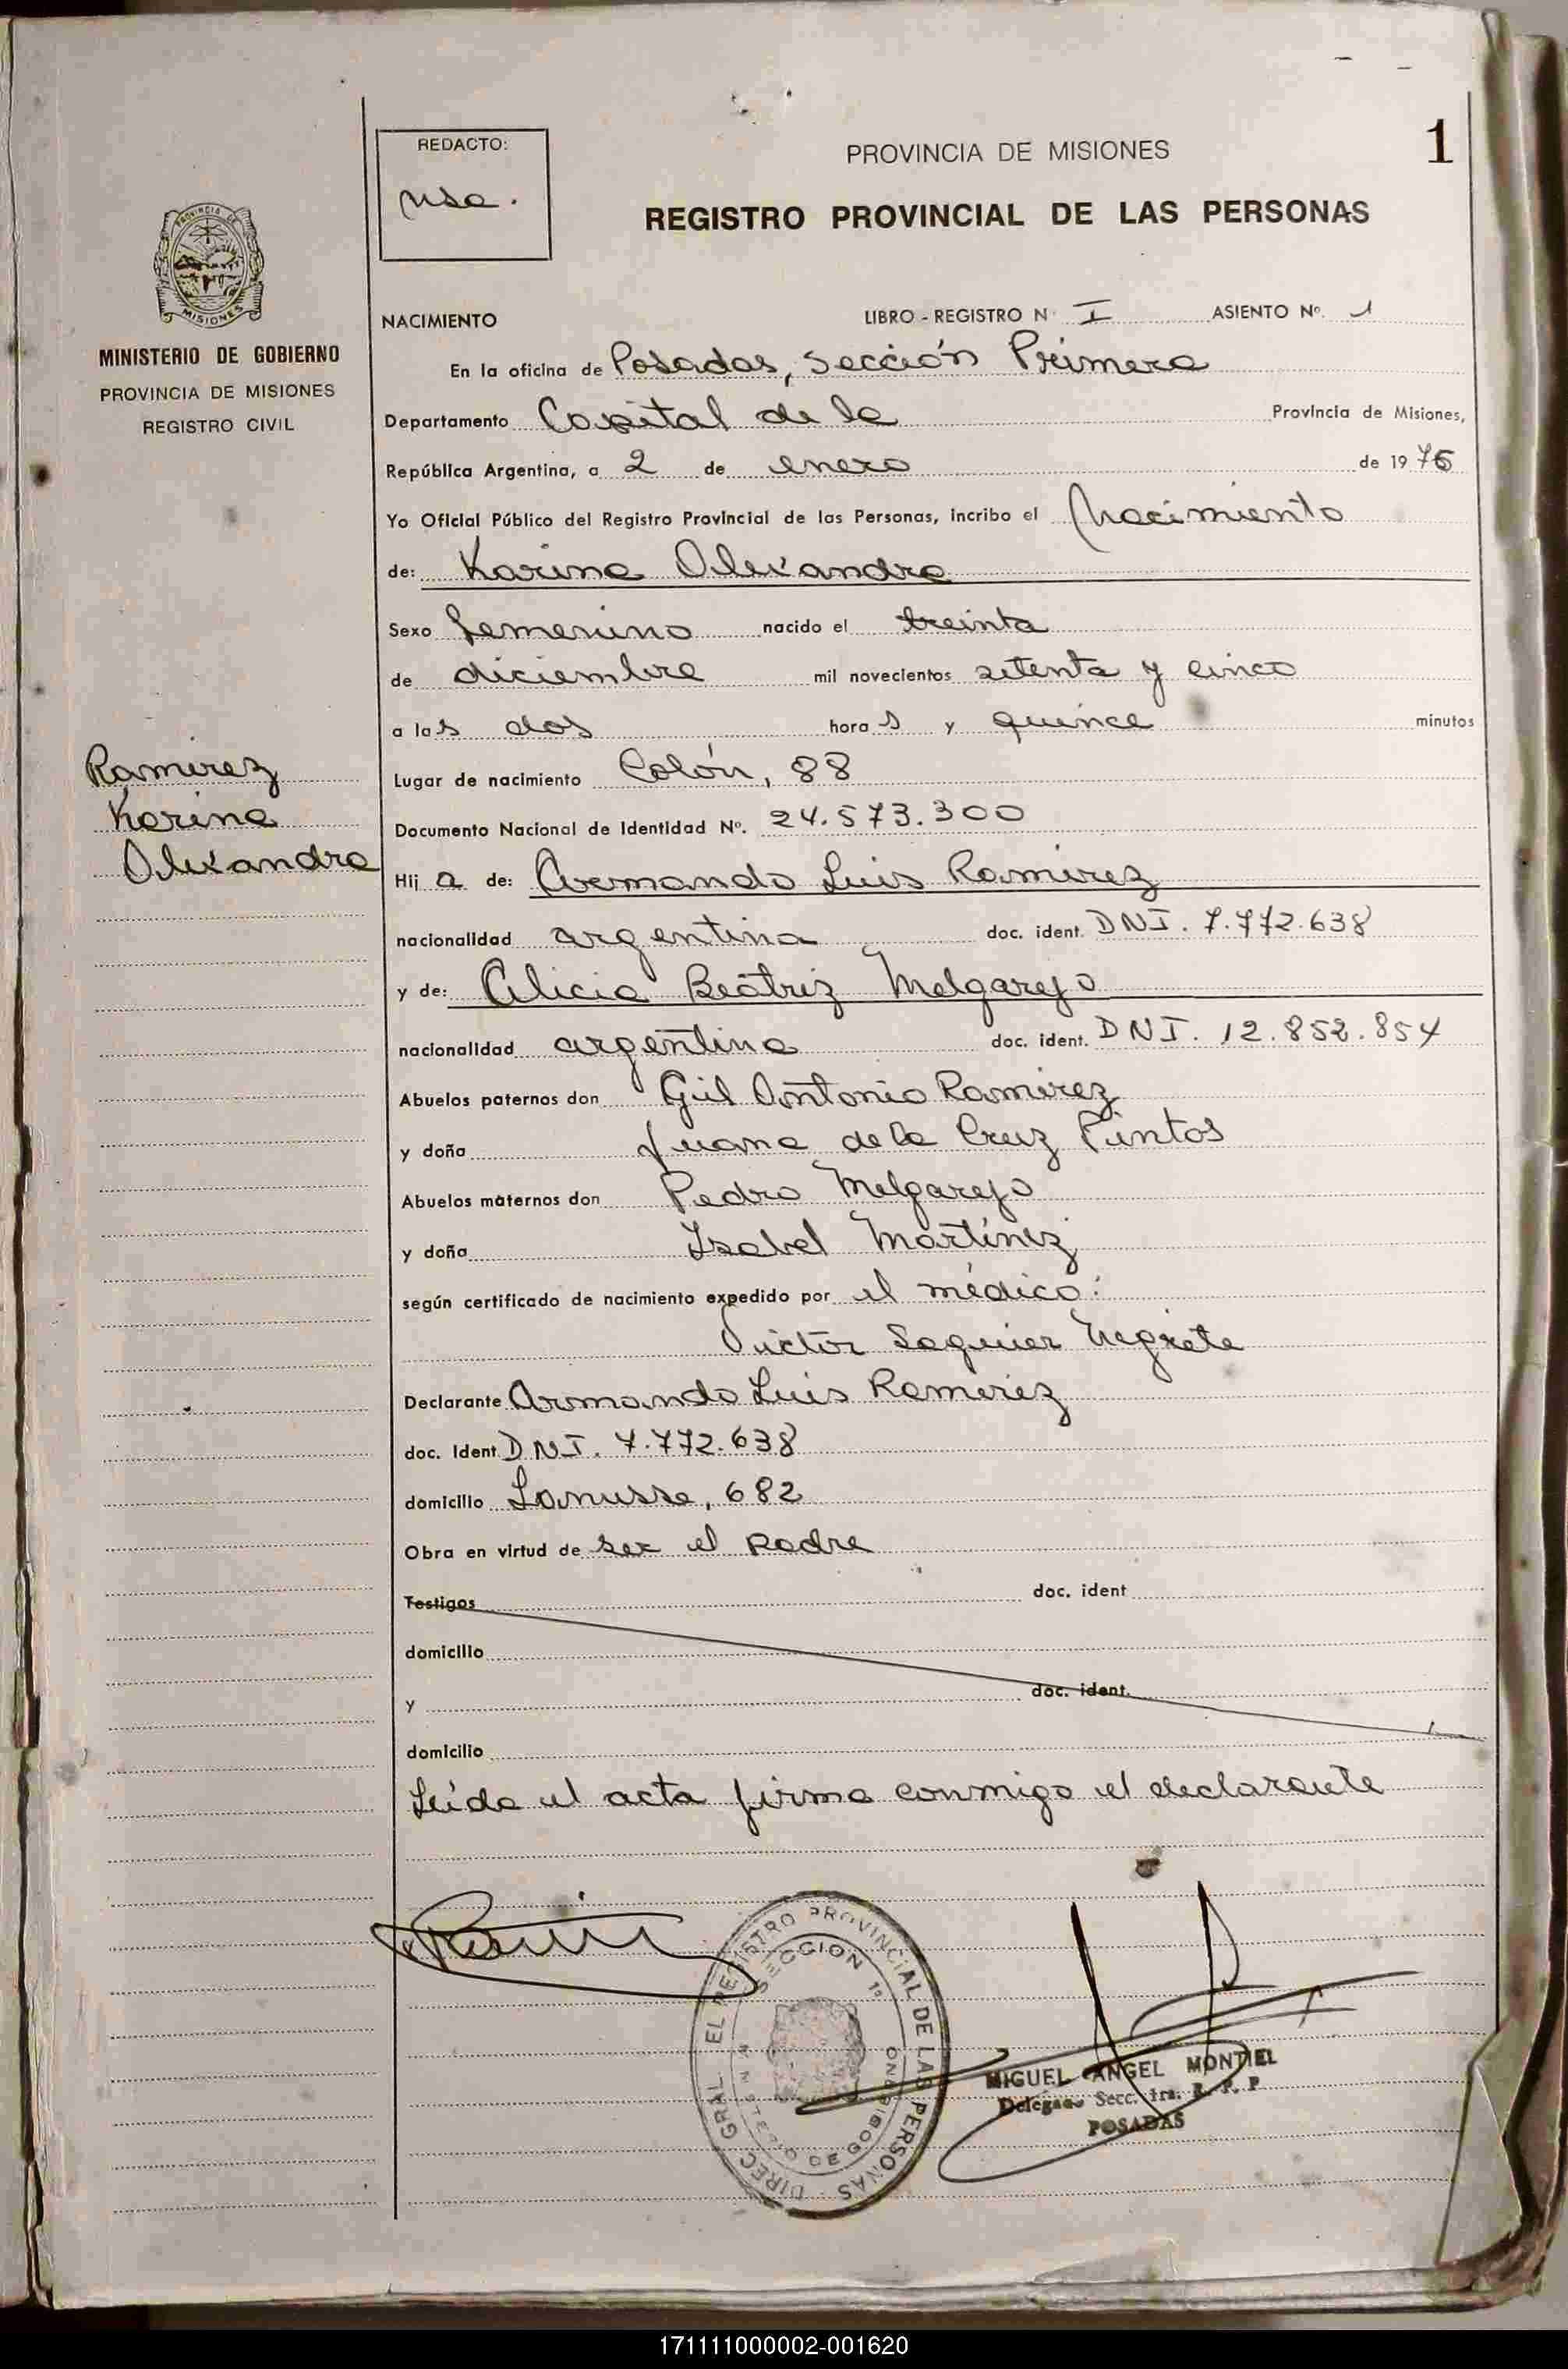 1
REDACTO:
PROVINCIA DE MISIONES
REGISTRO PROVINCIAL DE LAS PERSONAS
PROVINCIA DE
MISIONES
MINISTERIO DE GOBIERNO
PROVINCIA DE MISIONES
REGISTRO CIVIL
NACIMIENTO LIBRO - REGISTRO N I ASIENTO Nº. 1
En la oficina de Posadas, Sección Primera
Departamento Capital de la Provincia de Misiones,
República Argentina, a 2 de enero de 1976
Yo Oficial Público del Registro Provincial de las Personas, incribo el Nacimiento
de: Karina Alexandra
Sexo femenino nacido el treinta
de diciembre mil novecientos setenta y cinco
a las dos horas y quince minutos
Lugar de nacimiento Colón, 88
Documento Nacional de Identidad Nº. 24.573.300
Ramirez
Karina
Alexandra
Hija de: Armando Luis Ramirez
nacionalidad argentina doc. ident. DNI. 7.772.638
y de: Alicia Beatriz Melgarejo
nacionalidad argentina doc. ident. DNI. 12.852.854
Abuelos paternos don Gil Antonio Ramirez
y doña Juana de la Cruz Pintos
Abuelos maternos don Pedro Melgarejo
y doña Isabel Martínez
según certificado de nacimiento expedido por el médico:
Victor Saguier Negrete
Declarante Armando Luis Ramirez
doc. Ident. DNI. 7.772.638
domicilio Lanusse, 682
Obra en virtud de ser el padre
Testigos doc. ident
domicilio
y doc. ident.
domicilio
Leída el acta firma conmigo el declarante
DIREC GRAL EL REGISTRO PROVINCIAL DE LAS PERSONAS
SECCION 1º
MIGUEL ANGEL MONTIEL
Delegado Secc. 1ra. R. P. P
POSADAS
171111000002-001620